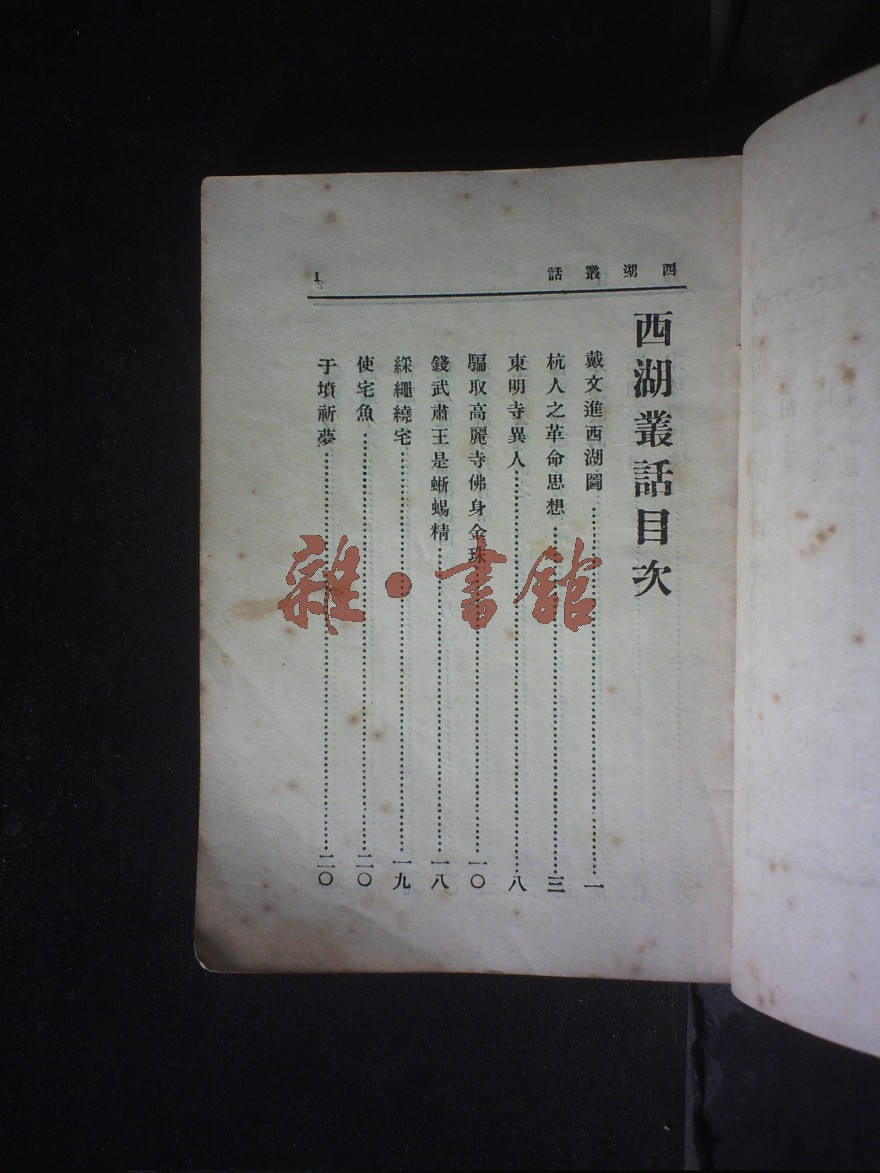 西湖叢話
1
西湖叢話目次
戴文進西湖圖……一
杭人之革命思想……三
東明寺異人……八
騙取高麗寺佛身金珠……一〇
錢武肅王是蜥蜴精……一八
綵繩繞宅……一九
使宅魚……二〇
于墳祈夢……二〇
雜·書館